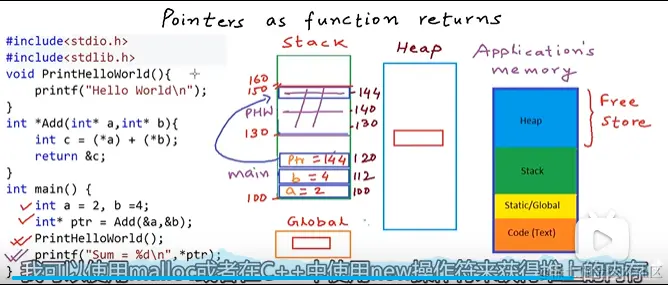 Pointers as function returns
#include<stdio.h>
#include<stdlib.h>
void PrintHelloWorld(){
printf("Hello World\n");
}
int *Add(int* a,int* b){
int c = (*a) + (*b);
return &c;
}
int main() {
int a = 2, b =4;
int* ptr = Add(&a,&b);
PrintHelloWorld();
printf("Sum = %d\n",*ptr);
}
Stack
160
150
144
PHW
140
130
130
ptr = 144
120
main
b = 4
112
a = 2
100
100
Global
Heap
Application's
memory
Heap
Free
Store
Stack
Static/Global
Code (Text)
我可以使用malloc或者在C++中使用new操作符来获得堆上的内存